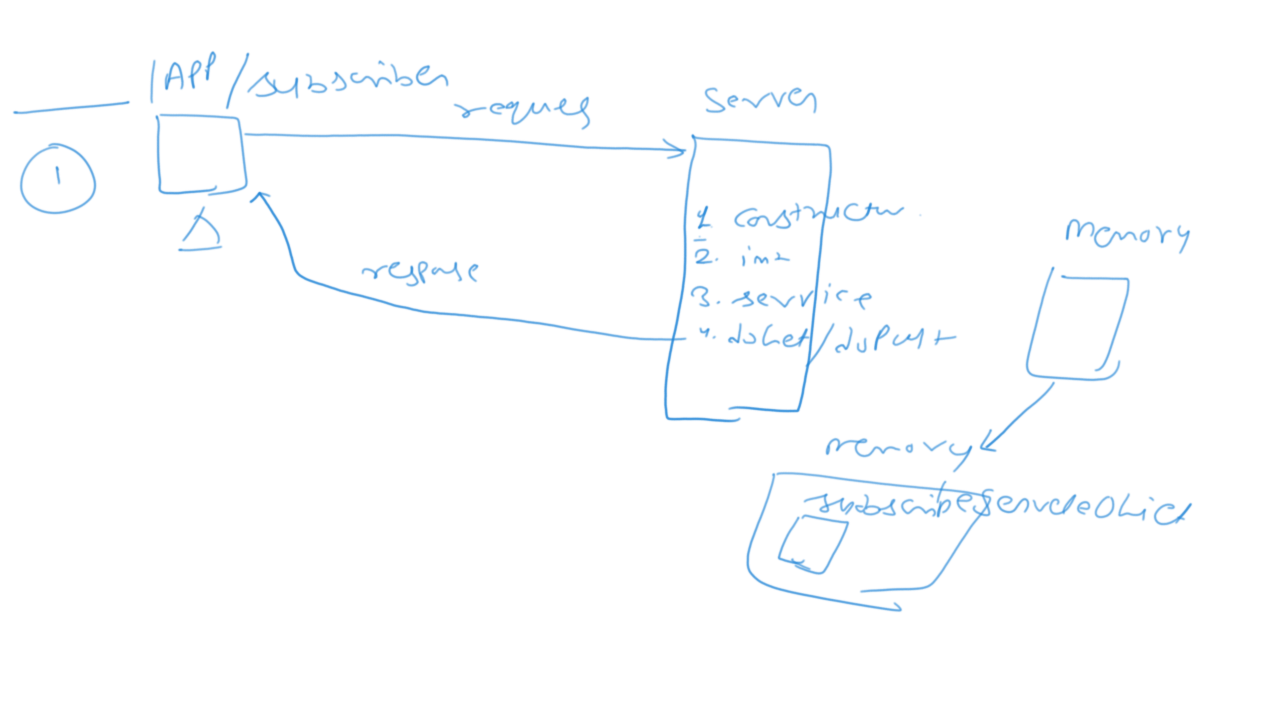 /APP/subscriber
reques
Server
1
1. constructur
2. init
3. service
4. doGet/doPut
response
memory
memory
subscribeServletObject